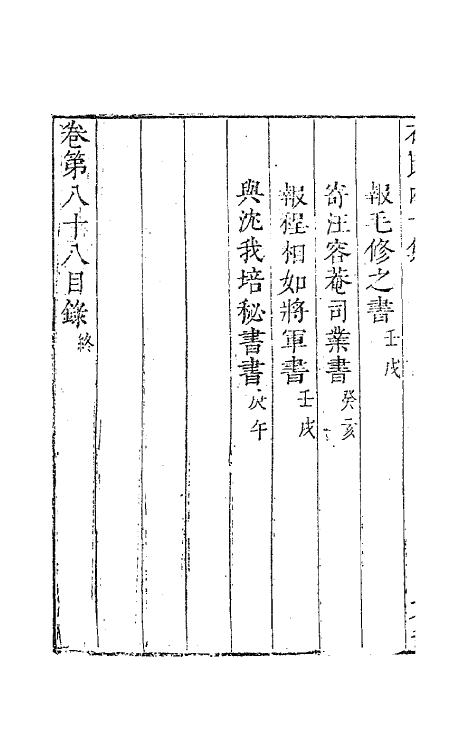 報毛修之書壬戌
寄汪容菴司業書癸亥
報程相如將軍書壬戌
與沈我培秘書書戊午
卷第八十八目錄終